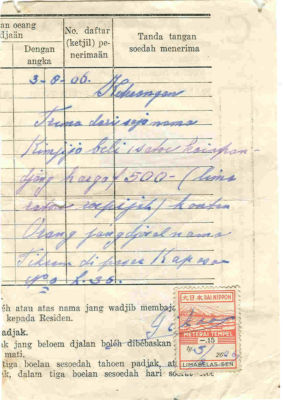 an oeang
djaän
Dengan
angka
No. daftar
(ketjil) pe-
nerimaän
Tanda tangan
soedah menerima
3-8-06.
Keterangan
Trima dari saja nama
beli (satoe kain pan-
djang harga f 500- (lima
ratoes roepijah) kontan
Orang jang djoeal nama
di pasar
No
léh atau atas nama jang wadjib membaj
kepada Residen.
padjak.
ak jang beloem djalan boléh dibébaskan
mati.
tiga boelan sesoedah tahoen padjak, at
ék, dalam tiga boelan sesoedah hari soerat
大日本 DAI NIPPON
METERAI TEMPEL
15
LIMABELAS-SEN